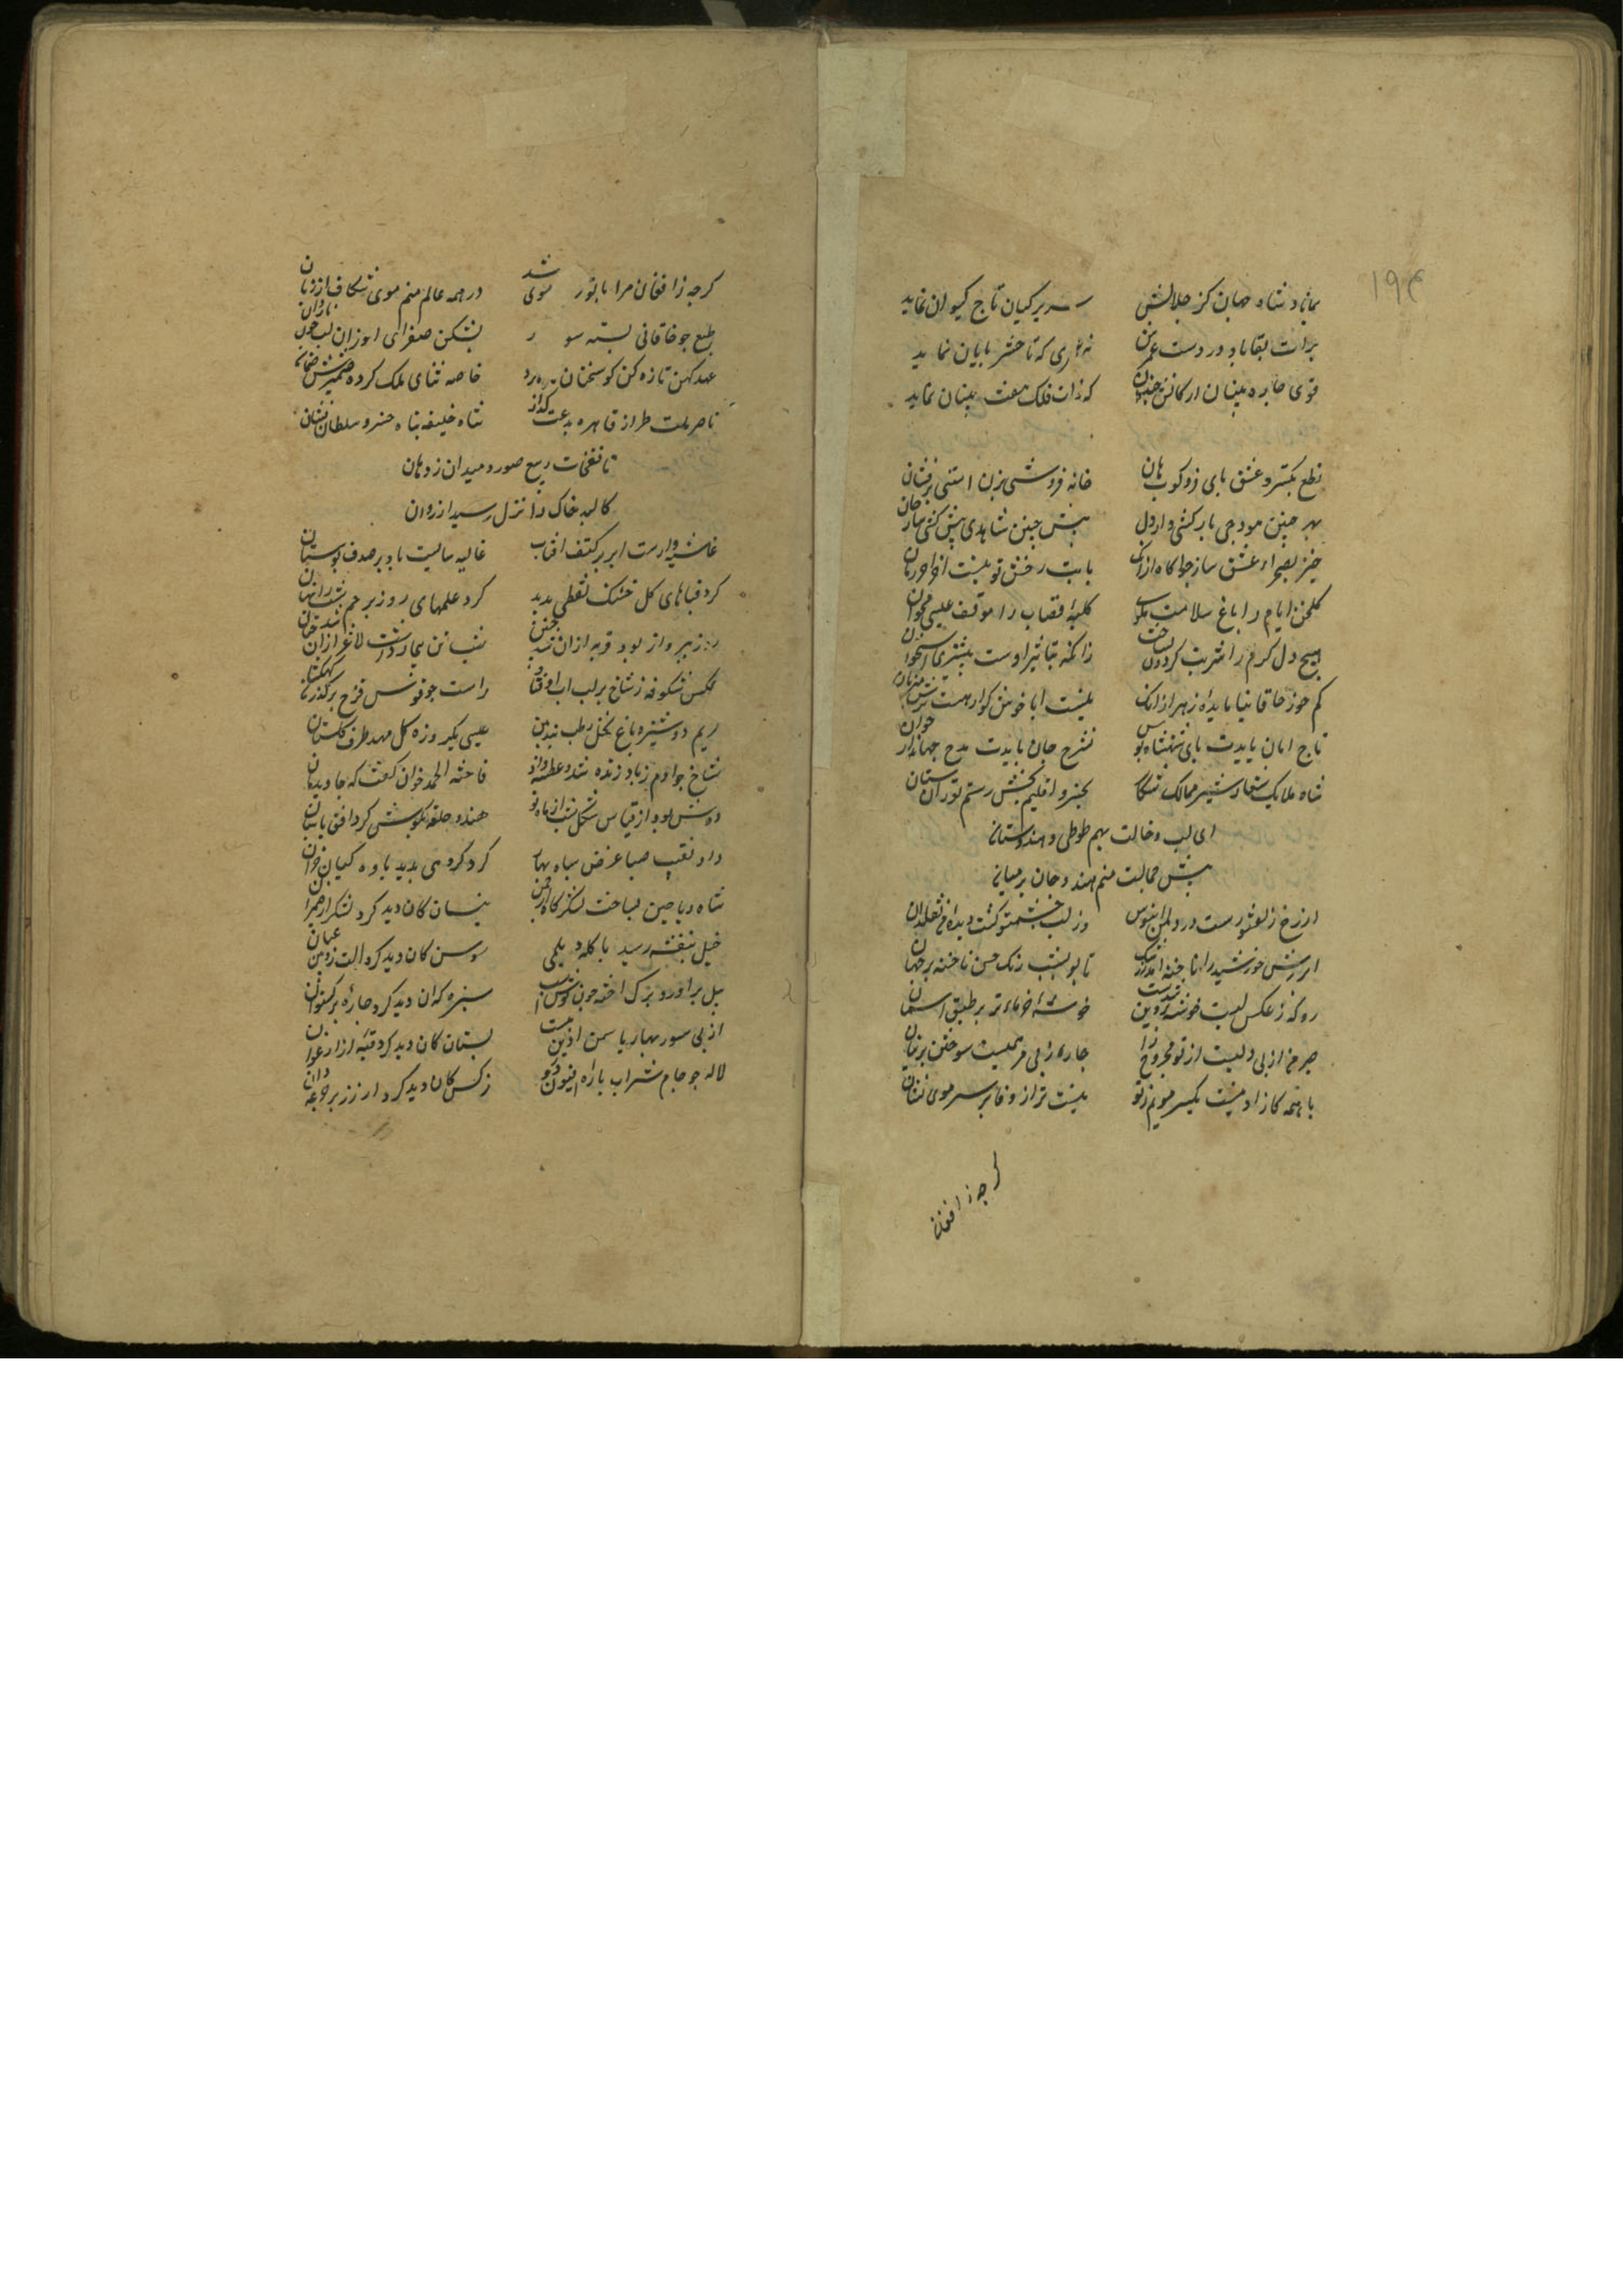 ۱۹۴
بماناد شاه جهان کز جلالش سریر کیان تاج کیوان نماید
برات بقا باد در دست عمرش نه عمری که تا حشر پایان نماید
قوی چار بنیان ارکانش چندان که ذات فلک هفت بنیان نماید
نطع بکستر و عشق بای فروکوب هان خانه فروشی بزن استنی برفشان
بهر جنین هودجی بارکشی دار دل بیش جنین شاهدی پیش کشی ساز جان
خیز بصحراء عشق ساز جراکاه ازانک بابت رخش تو نیست آخور آخر زمان
کلخن ایام را باغ سلامت مکوی کلبه قصاب را موقف عیسی مخوان
هیچ دل کرم را شربت کردون نساخت زانک تباشیر اوست بیشتری استخوان
کم خور خاقانیا مایده زهر ازانک نیست ابا خوش کوار هست ترش میزبان
تاج امان بایدت بای شهنشاه بوس شرح جان بایدت مدح جهاندار خوان
شاه ملایک شعار شیر ممالک شکار خسرو اقلیم بخش رستم توران ستان
ای لب و خالت بهم طوطی و هندوستان
پیش جمالت منم هندو جان بر میان
از رخ و زلف تو رست در دل من آبنوس وز لب و چشم تو کشت دیده من نقلدان
ابرش خورشید را ناخنه آمد زرشک تا تو بشب رنک حسن تاختنه بر جهان
رو که ز عکس لبت خوشه پروین شدست خوشه خرمای تر بر طبق آسمان
صبر من از بی دلیست از تو که مجروح را چاره ز بی مرهمیست سوختن پرنیان
با همه کازاد نیست یکسر مویم ز تو نیست ترا از وفا بر سر موی نشان
کرجه ز افغان
کرجه ز افغان مرا با تو ر موی شد در همه عالم منم موی شکاف از زبان
طبع جو خاقانی بسته سو ر بشکن صفرای او زان لب جون ناردان
عهد کهن تازه کن کو سخنان تازه کرد خاصه ثنای ملک کرده ضمیرش ضمان
ناصر ملت طراز قاهر بدعت کداز شاه خلیفه پناه خسرو سلطان نشان
تا نفخات ربیع صور دمید از دهان
کالبد خاک را نزل رسید از روان
غاشیه دارست ابر بر کتف آفتاب غالیه سایست باد بر صدف بوستان
کرد قباهای کل خشتک نفطی بدید کرد علمهای روز برجم شب را نهان
روز بپرواز بود فربه ازان شد جنین شب تن بیمار داشت لاغر ازان شد جنان
عکس شکوفه ز شاخ بر لب آب اوفتاد راست جو قوس قزح بر کذر کهکشان
مریم دوشیزه باغ نخل رطب بید بن عیسی یکروزه کل مهد طرف کلستان
شاخ جو آدم ز باد زنده شد و عطسه داد فاخته الحمد خوان کفت که جاوید مان
دوش بود از قیاس شکل شب از ماه نو هندو حلقه بکوش کرد افق پاسبان
داد نقیب صبا عرض سپاه بهار کرد کروهی بدید یاوه کیان خزان
شاه ریاحین بساخت لشکرکاه از چمن نیسان کان دید کرد لشکری از ضمیران
خیل بنفشه رسید با کله دیلمی سوسن کان دید کرد آلت زوبین عیان
بید برآورد برک آخته جون کوش اسب سبزه که آن دید کرد جاره برکستوان
از پی سور بهار یاسمن آذین ببست بستان کان دید کرد قبه از ارغوان
لاله جو جام شراب پاره افیون درو نرکس کان دید کرد از زر تر جرعه دان